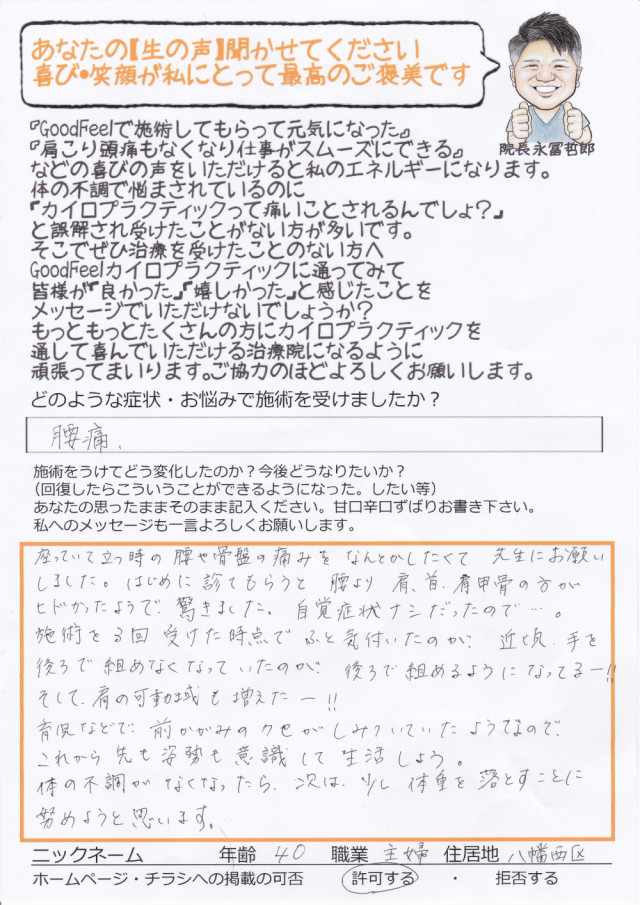 あなたの【生の声】聞かせてください
喜び・笑顔が私にとって最高のご褒美です
院長 永冨哲郎
『GoodFeelで施術してもらって元気になった』
『肩こり頭痛もなくなり仕事がスムーズにできる』
などの喜びの声をいただけると私のエネルギーになります。
体の不調で悩まされているのに
「カイロプラクティックって痛いことされるんでしょ？」
と誤解され受けたことがない方が多いです。
そこでぜひ治療を受けたことのない方へ
GoodFeelカイロプラクティックに通ってみて
皆様が「良かった」「嬉しかった」と感じたことを
メッセージでいただけないでしょうか？
もっともっとたくさんの方にカイロプラクティックを
通して喜んでいただける治療院になるように
頑張ってまいります。ご協力のほどよろしくお願いします。
どのような症状・お悩みで施術を受けましたか？
腰痛、
施術をうけてどう変化したのか？今後どうなりたいか？
（回復したらこういうことができるようになった。したい等）
あなたの思ったままそのまま記入ください。甘口辛口ずばりお書き下さい。
私へのメッセージも一言よろしくお願いします。
座っていて立つ時の腰や骨盤の痛みをなんとかしたくて 先生にお願い
しました。はじめに診てもらうと 腰より 肩、首、肩甲骨の方が
ヒドかったようで、驚きました。自覚症状ナシだったので…。
施術を3回 受けた時点で ふと気付いたのが、近頃、手を
後ろで組めなくなっていたのが、後ろで組めるようになってるー!!
そして、肩の可動域も増えたー!!
育児などで、前かがみのクセがしみついていたようなので、
これから先も姿勢も意識して生活しよう。
体の不調がなくなったら、次は、少し体重を落とすことに
努めようと思います。
ニックネーム 年齢 40 職業 主婦 住居地 八幡西区
ホームページ・チラシへの掲載の可否 許可する ・ 拒否する